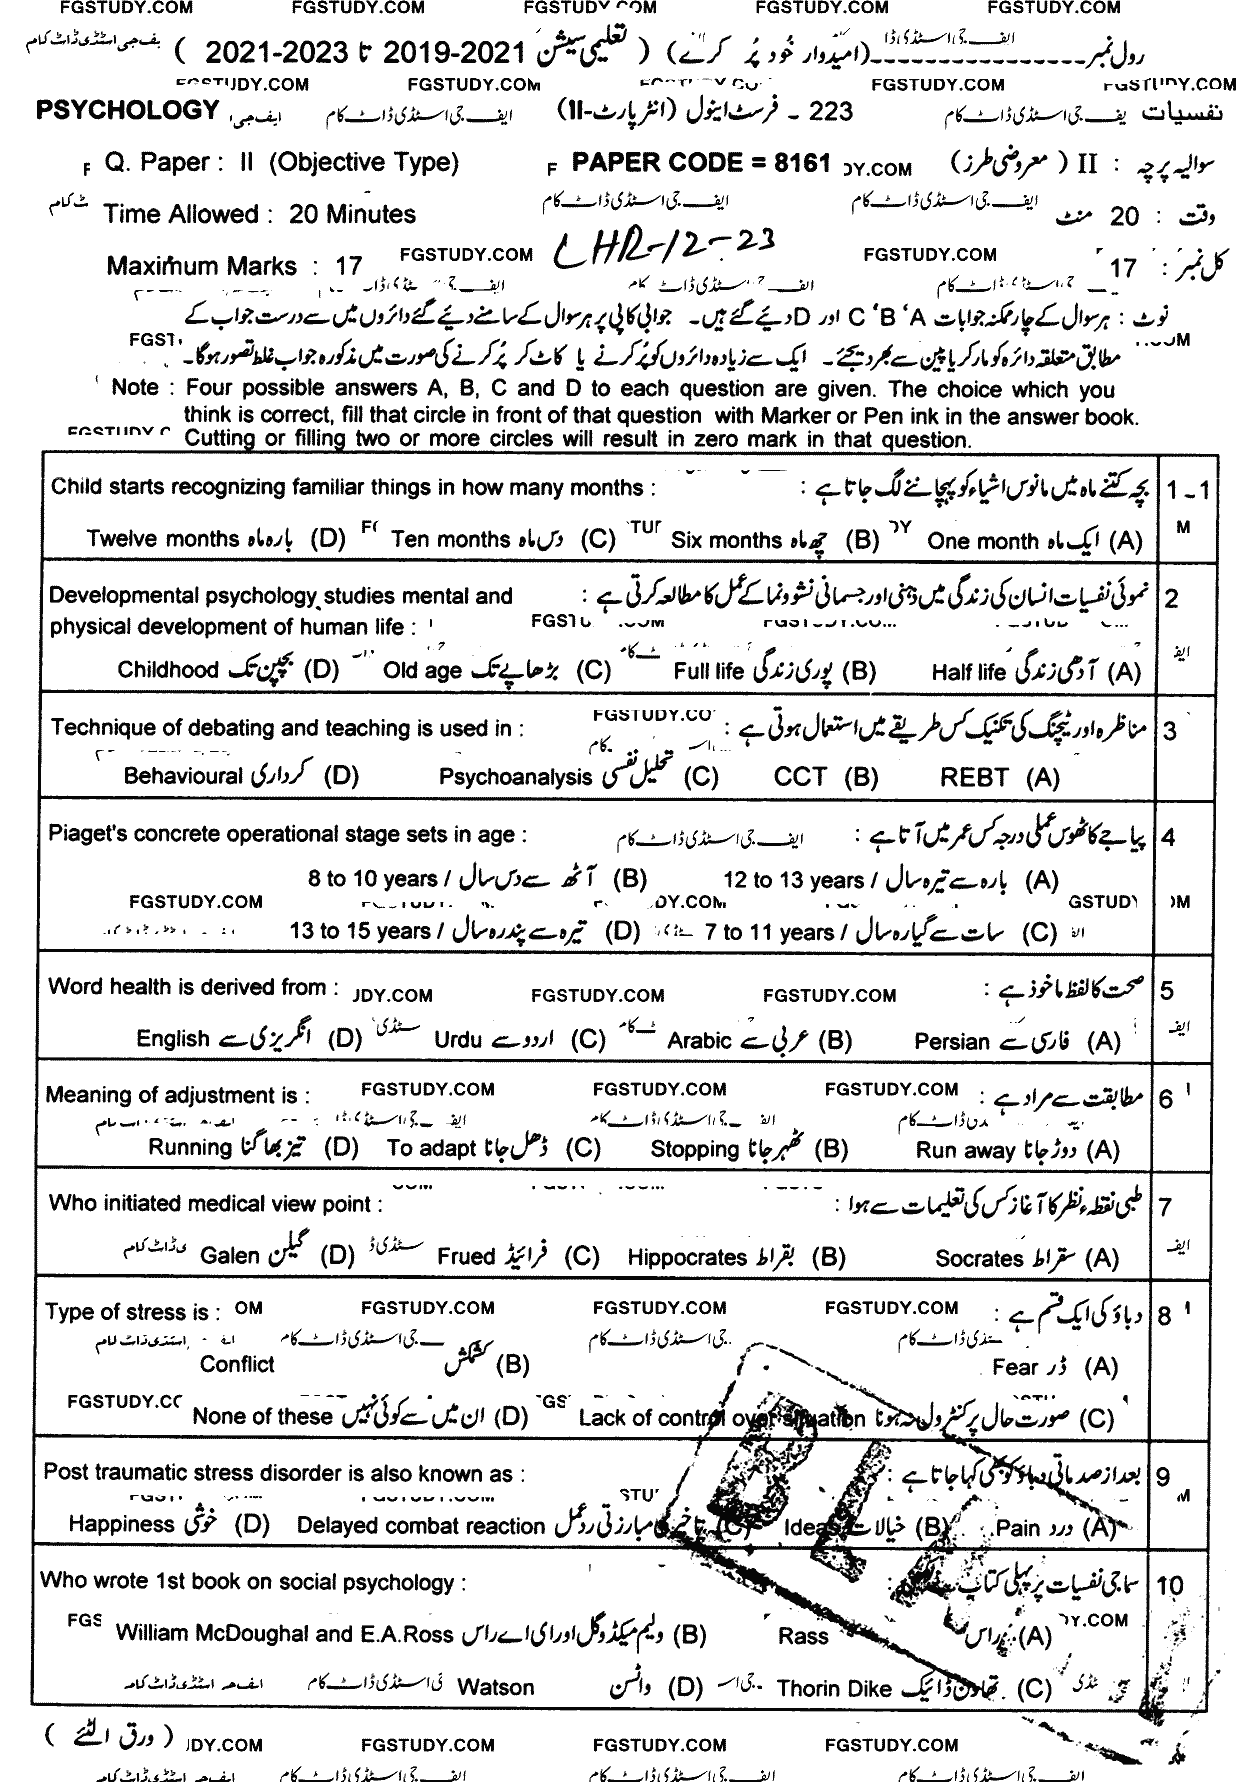 FGSTUDY.COM FGSTUDY.COM FGSTUDY.COM FGSTUDY.COM FGSTUDY.COM
رول نمبر ________________(امیدوار خود پُر کرے) ( تعلیمی سیشن 2021-2019 تا 2023-2021 )
FGSTUDY.COM FGSTUDY.COM FGSTUDY.COM
PSYCHOLOGY 223 - فرسٹ اینول (انٹر پارٹ-II) نفسیات
Q. Paper : II (Objective Type) PAPER CODE = 8161 سوالیہ پرچہ : II ( معروضی طرز )
Time Allowed : 20 Minutes وقت : 20 منٹ
Maximum Marks : 17 FGSTUDY.COM LHR-12-23 FGSTUDY.COM کل نمبر : 17
نوٹ : ہر سوال کے چار ممکنہ جوابات A ‘ B ‘ C اور D دیئے گئے ہیں۔ جوابی کاپی پر ہر سوال کے سامنے دیئے گئے دائروں میں سے درست جواب کے
مطابق متعلقہ دائرہ کو مارکر یا پین سے بھر دیجئے۔ ایک سے زیادہ دائروں کو پُر کرنے یا کاٹ کر پُر کرنے کی صورت میں مذکورہ جواب غلط تصور ہوگا۔
Note : Four possible answers A, B, C and D to each question are given. The choice which you
think is correct, fill that circle in front of that question with Marker or Pen ink in the answer book.
Cutting or filling two or more circles will result in zero mark in that question.
Child starts recognizing familiar things in how many months : بچہ کتنے ماہ میں مانوس اشیاء کو پہچاننے لگ جاتا ہے : 1-1
Twelve months بارہ ماہ (D) Ten months دس ماہ (C) Six months چھ ماہ (B) One month ایک ماہ (A)
Developmental psychology studies mental and نموئی نفسیات انسان کی زندگی میں ذہنی اور جسمانی نشوونما کے عمل کا مطالعہ کرتی ہے : 2
physical development of human life :
Childhood بچپن تک (D) Old age بڑھاپے تک (C) Full life پوری زندگی (B) Half life آدھی زندگی (A)
Technique of debating and teaching is used in : مناظرہ اور ٹیچنگ کی تکنیک کس طریقے میں استعمال ہوتی ہے : 3
Behavioural کرداری (D) Psychoanalysis تحلیل نفسی (C) CCT (B) REBT (A)
Piaget's concrete operational stage sets in age : پیاجے کا ٹھوس عملی درجہ کس عمر میں آتا ہے : 4
8 to 10 years / آٹھ سے دس سال (B) 12 to 13 years / بارہ سے تیرہ سال (A)
13 to 15 years / تیرہ سے پندرہ سال (D) 7 to 11 years / سات سے گیارہ سال (C)
Word health is derived from : FGSTUDY.COM FGSTUDY.COM صحت کا لفظ ماخوذ ہے : 5
English انگریزی سے (D) Urdu اردو سے (C) Arabic عربی سے (B) Persian فارسی سے (A)
Meaning of adjustment is : FGSTUDY.COM FGSTUDY.COM FGSTUDY.COM مطابقت سے مراد ہے : 6
Running تیز بھاگنا (D) To adapt ڈھل جانا (C) Stopping ٹھہر جانا (B) Run away دوڑ جانا (A)
Who initiated medical view point : طبی نقطہ نظر کا آغاز کس کی تعلیمات سے ہوا : 7
Galen گیلن (D) Frued فرائیڈ (C) Hippocrates بقراط (B) Socrates سقراط (A)
Type of stress is : FGSTUDY.COM FGSTUDY.COM FGSTUDY.COM دباؤ کی ایک قسم ہے : 8
Conflict کشمکش (B) Fear ڈر (A)
None of these ان میں سے کوئی نہیں (D) Lack of control over situation صورت حال پر کنٹرول نہ ہونا (C)
Post traumatic stress disorder is also known as : بعد از صدماتی دباؤ کو بھی کہا جاتا ہے : 9
Happiness خوشی (D) Delayed combat reaction تاخیری مبارزتی ردعمل (C) Ideas خیالات (B) Pain درد (A)
Who wrote 1st book on social psychology : سماجی نفسیات پر پہلی کتاب 10
William McDoughal and E.A.Ross ولیم میکڈوگل اور ای اے راس (B) Rass راس (A)
Watson واٹسن (D) Thorin Dike تھارن ڈائیک (C)
( ورق الٹئے )
FGSTUDY.COM FGSTUDY.COM FGSTUDY.COM